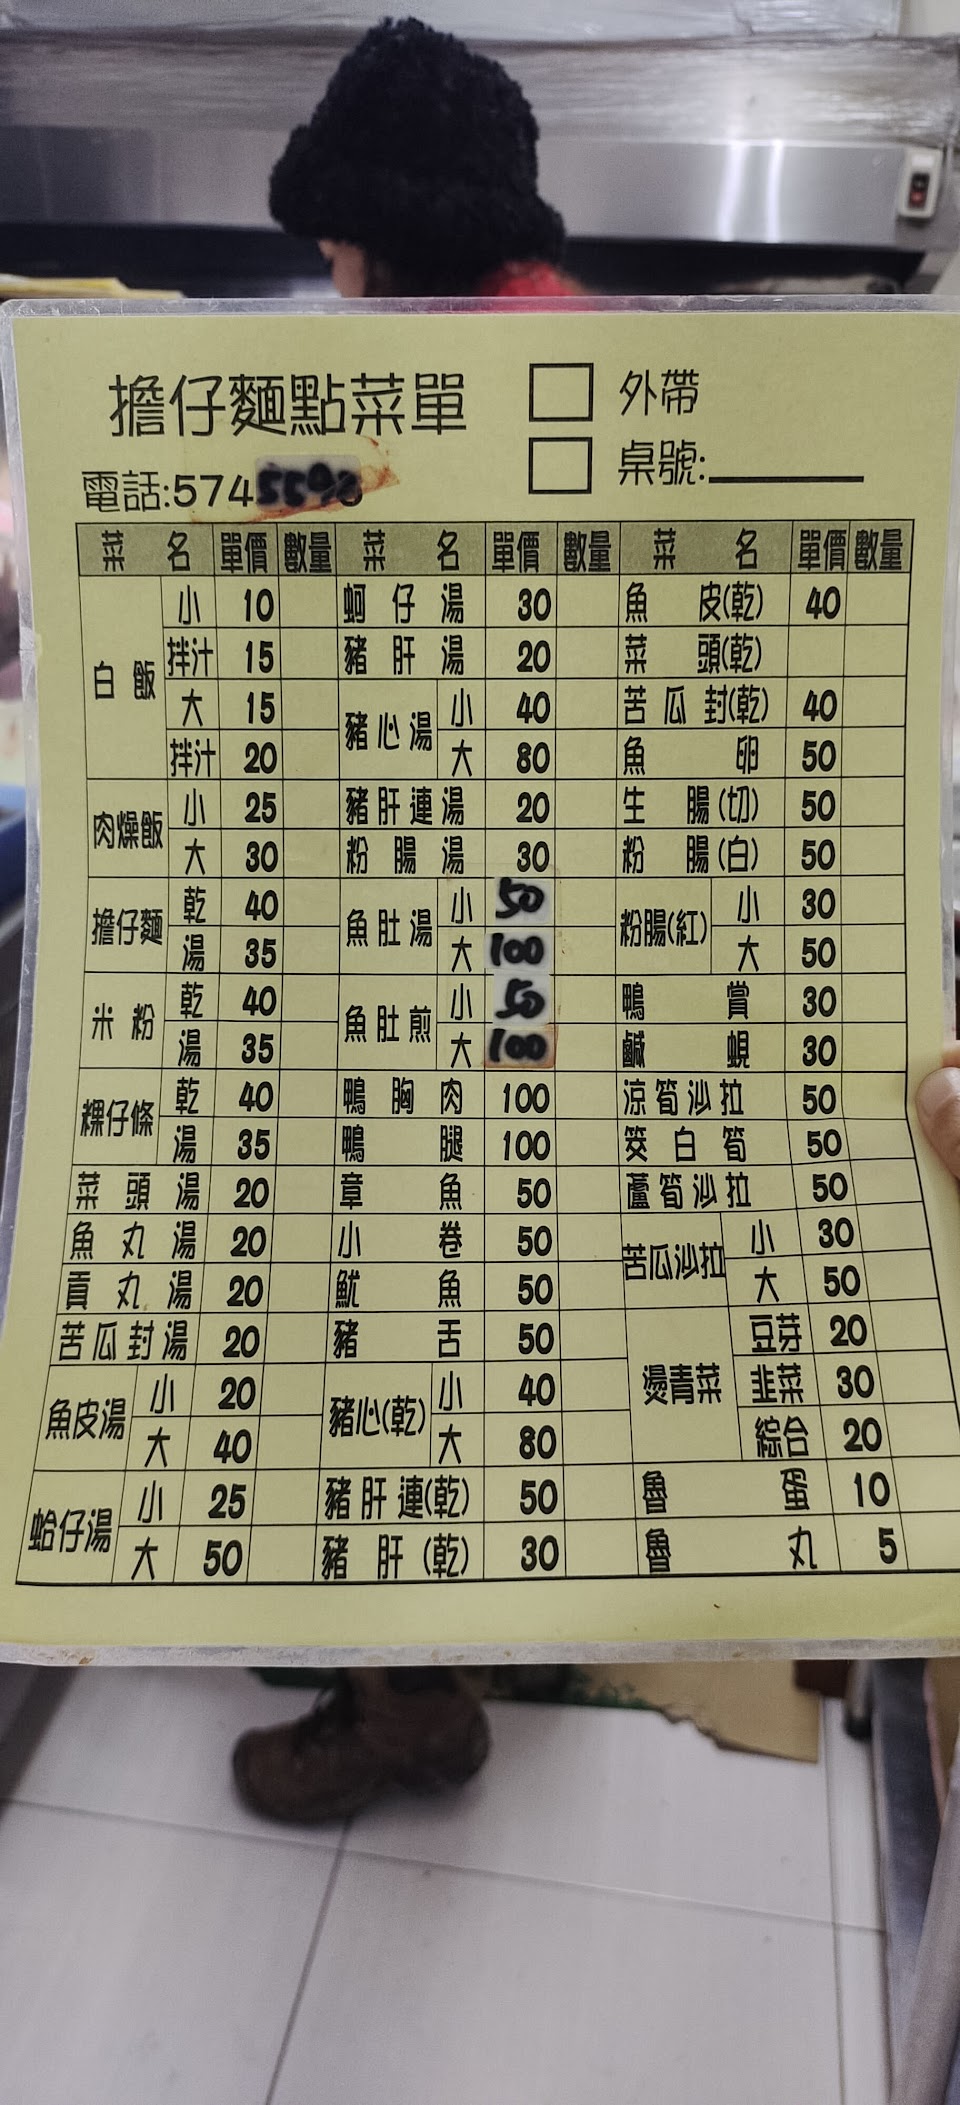 擔仔麵點菜單
外帶
桌號:
電話:574
菜名 單價 數量 菜名 單價 數量 菜名 單價 數量
白飯 小 10
拌汁 15
大 15
拌汁 20
肉燥飯 小 25
大 30
擔仔麵 乾 40
湯 35
米粉 乾 40
湯 35
粿仔條 乾 40
湯 35
菜頭湯 20
魚丸湯 20
貢丸湯 20
苦瓜封湯 20
魚皮湯 小 20
大 40
蛤仔湯 小 25
大 50
蚵仔湯 30
豬肝湯 20
豬心湯 小 40
大 80
豬肝連湯 20
粉腸湯 30
魚肚湯 小 50
大 100
魚肚煎 小 50
大 100
鴨胸肉 100
鴨腿 100
章魚 50
小卷 50
魷魚 50
豬舌 50
豬心(乾) 小 40
大 80
豬肝連(乾) 50
豬肝(乾) 30
魚皮(乾) 40
菜頭(乾)
苦瓜封(乾) 40
魚卵 50
生腸(切) 50
粉腸(白) 50
粉腸(紅) 小 30
大 50
鴨賞 30
鹹蜆 30
涼筍沙拉 50
筊白筍 50
蘆筍沙拉 50
苦瓜沙拉 小 30
大 50
燙青菜 豆芽 20
韭菜 30
綜合 20
魯蛋 10
魯丸 5